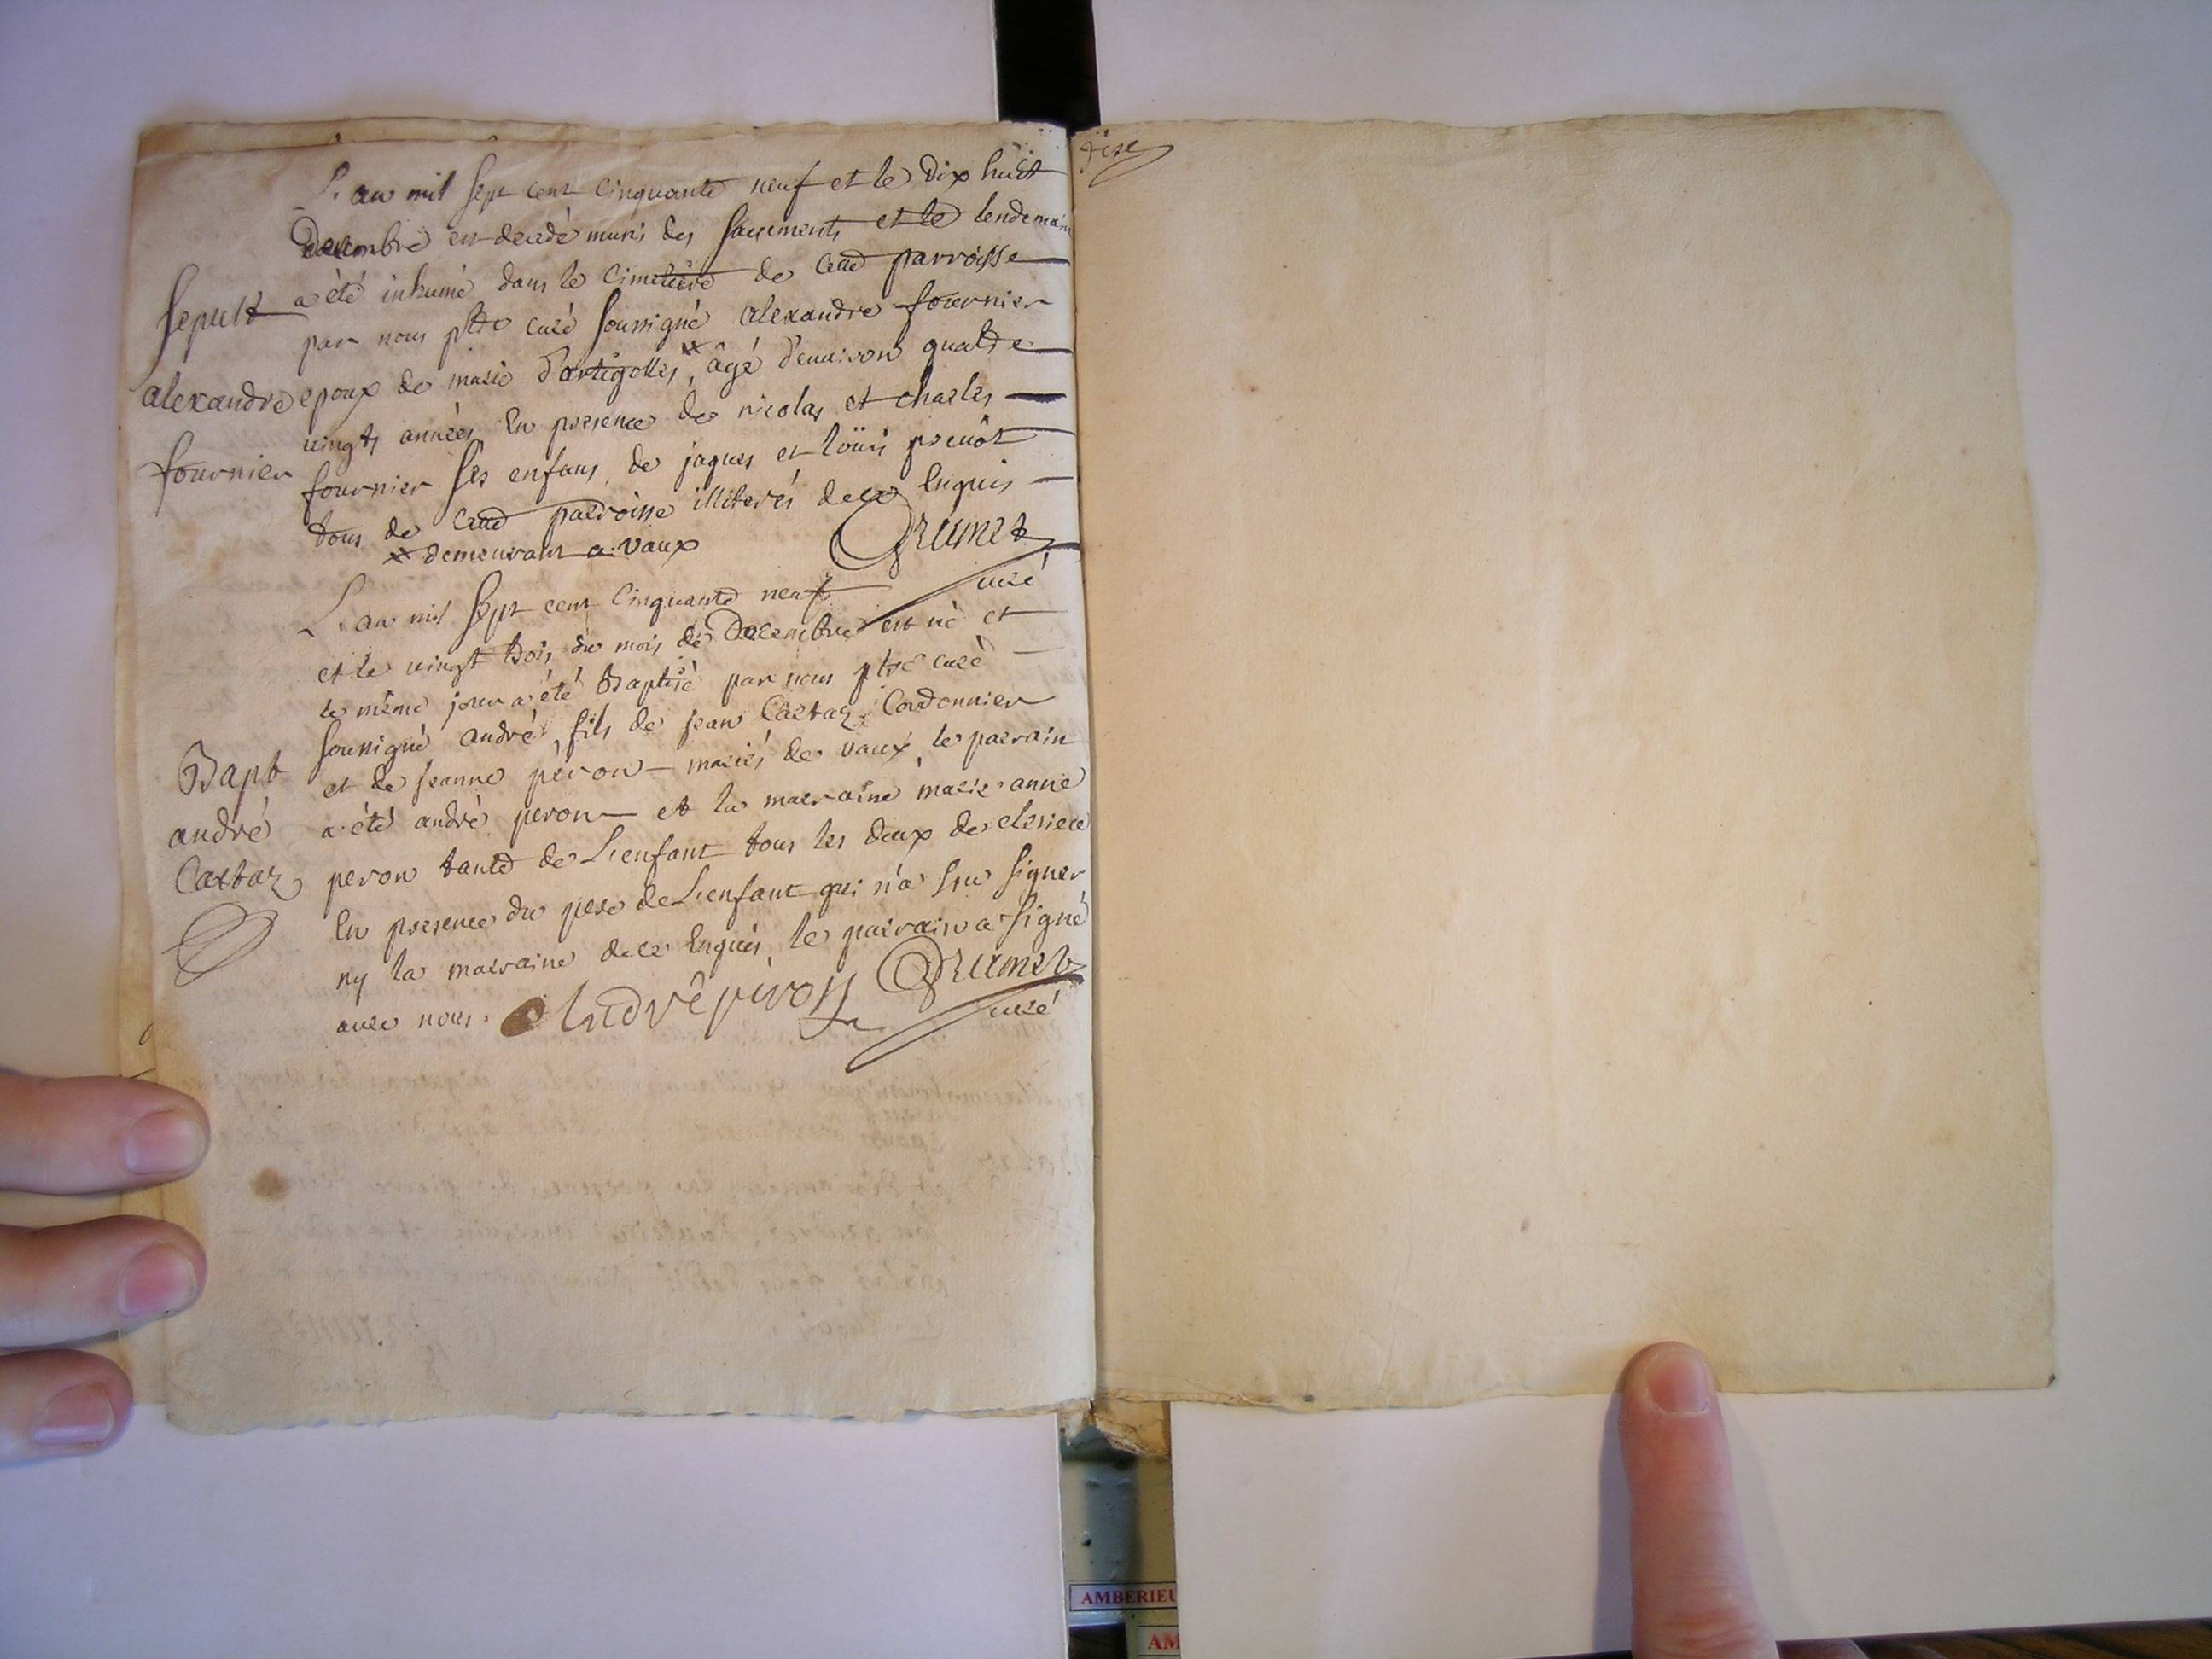 L'an mil sept cent cinquante neuf et le dix huit
Decembre est decedé muni des sacrements et le lendemain
a été inhumé dans le cimetiere de cette parroisse
Sepult
par nous ptre curé soussigné alexandre fournier
alexandre
epoux de marie Dartigolles, ** âgé d'environ quatre
vingts années En presence de nicolas et charles
fournier
fournier ses enfans, de jaques et loüis prevôt
tous de cette parroisse illiterés de ce Enquis
** demeurant a vaux
Brunet
curé
L'an mil sept cent cinquante neuf
et le vingt trois du mois de Decembre est né et
le même jour a été Baptisé par nous ptre curé
soussigné andré, fils de jean Caltaz Cordonnier
Bapt
et de jeanne péron mariés de vaux, le parrain
andré
a été andré peron et la marraine marie anne
Caltaz
peron tante de L'enfant tous les deux de
En presence du pere de L'enfant qui n'a sçu signer
ny la marraine de ce Enquis, le parrain a signé
avec nous. André péron
Brunet
curé
AMBERIEU
AM